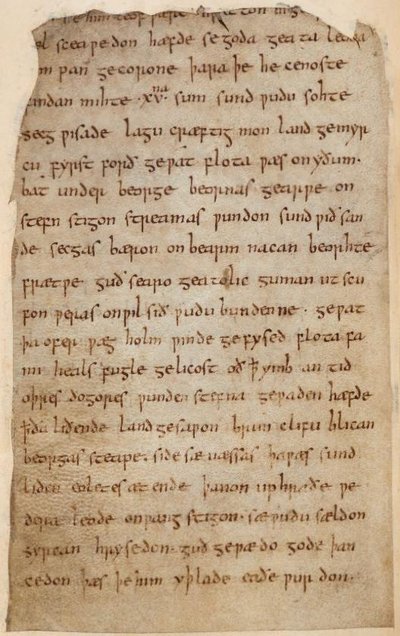 þe him leof ƿære
el sceaƿedon hæfde se goda geata leoda
m þan gecorone þara þe he cenoste
findan mihte ·xv·na sum sund ƿudu sohte
secg ƿisade lagu cræftig mon land gemyr
cu fyrst forð geƿat flota ƿæs on yðum·
bat under beorge beornas gearƿe on
stefn stigon streamas ƿundon sund ƿið san
de secgas bæron on bearm nacan beorhte
frætƿe guð searo geatolic guman ut scu
fon ƿeras on ƿil sið ƿudu bundenne · geƿat
þa ofer ƿæg holm ƿinde gefysed flota fa
mi heals fugle gelicost oð ꝥ ymb an tid
oþres dogores ƿunden stefna geƿaden hæfde
ꝥ ða liðende land gesaƿon brim clifu blican
beorgas steape· side sæ næssas þa ƿæs sund
liden eoletes æt ende þanon up hraðe ƿe
dera leode on ƿang stigon· sæ ƿudu sældon
syrcan hrysedon· guð geƿædo gode þan
cedon þæs þe him yþ lade eaðe ƿurdon·